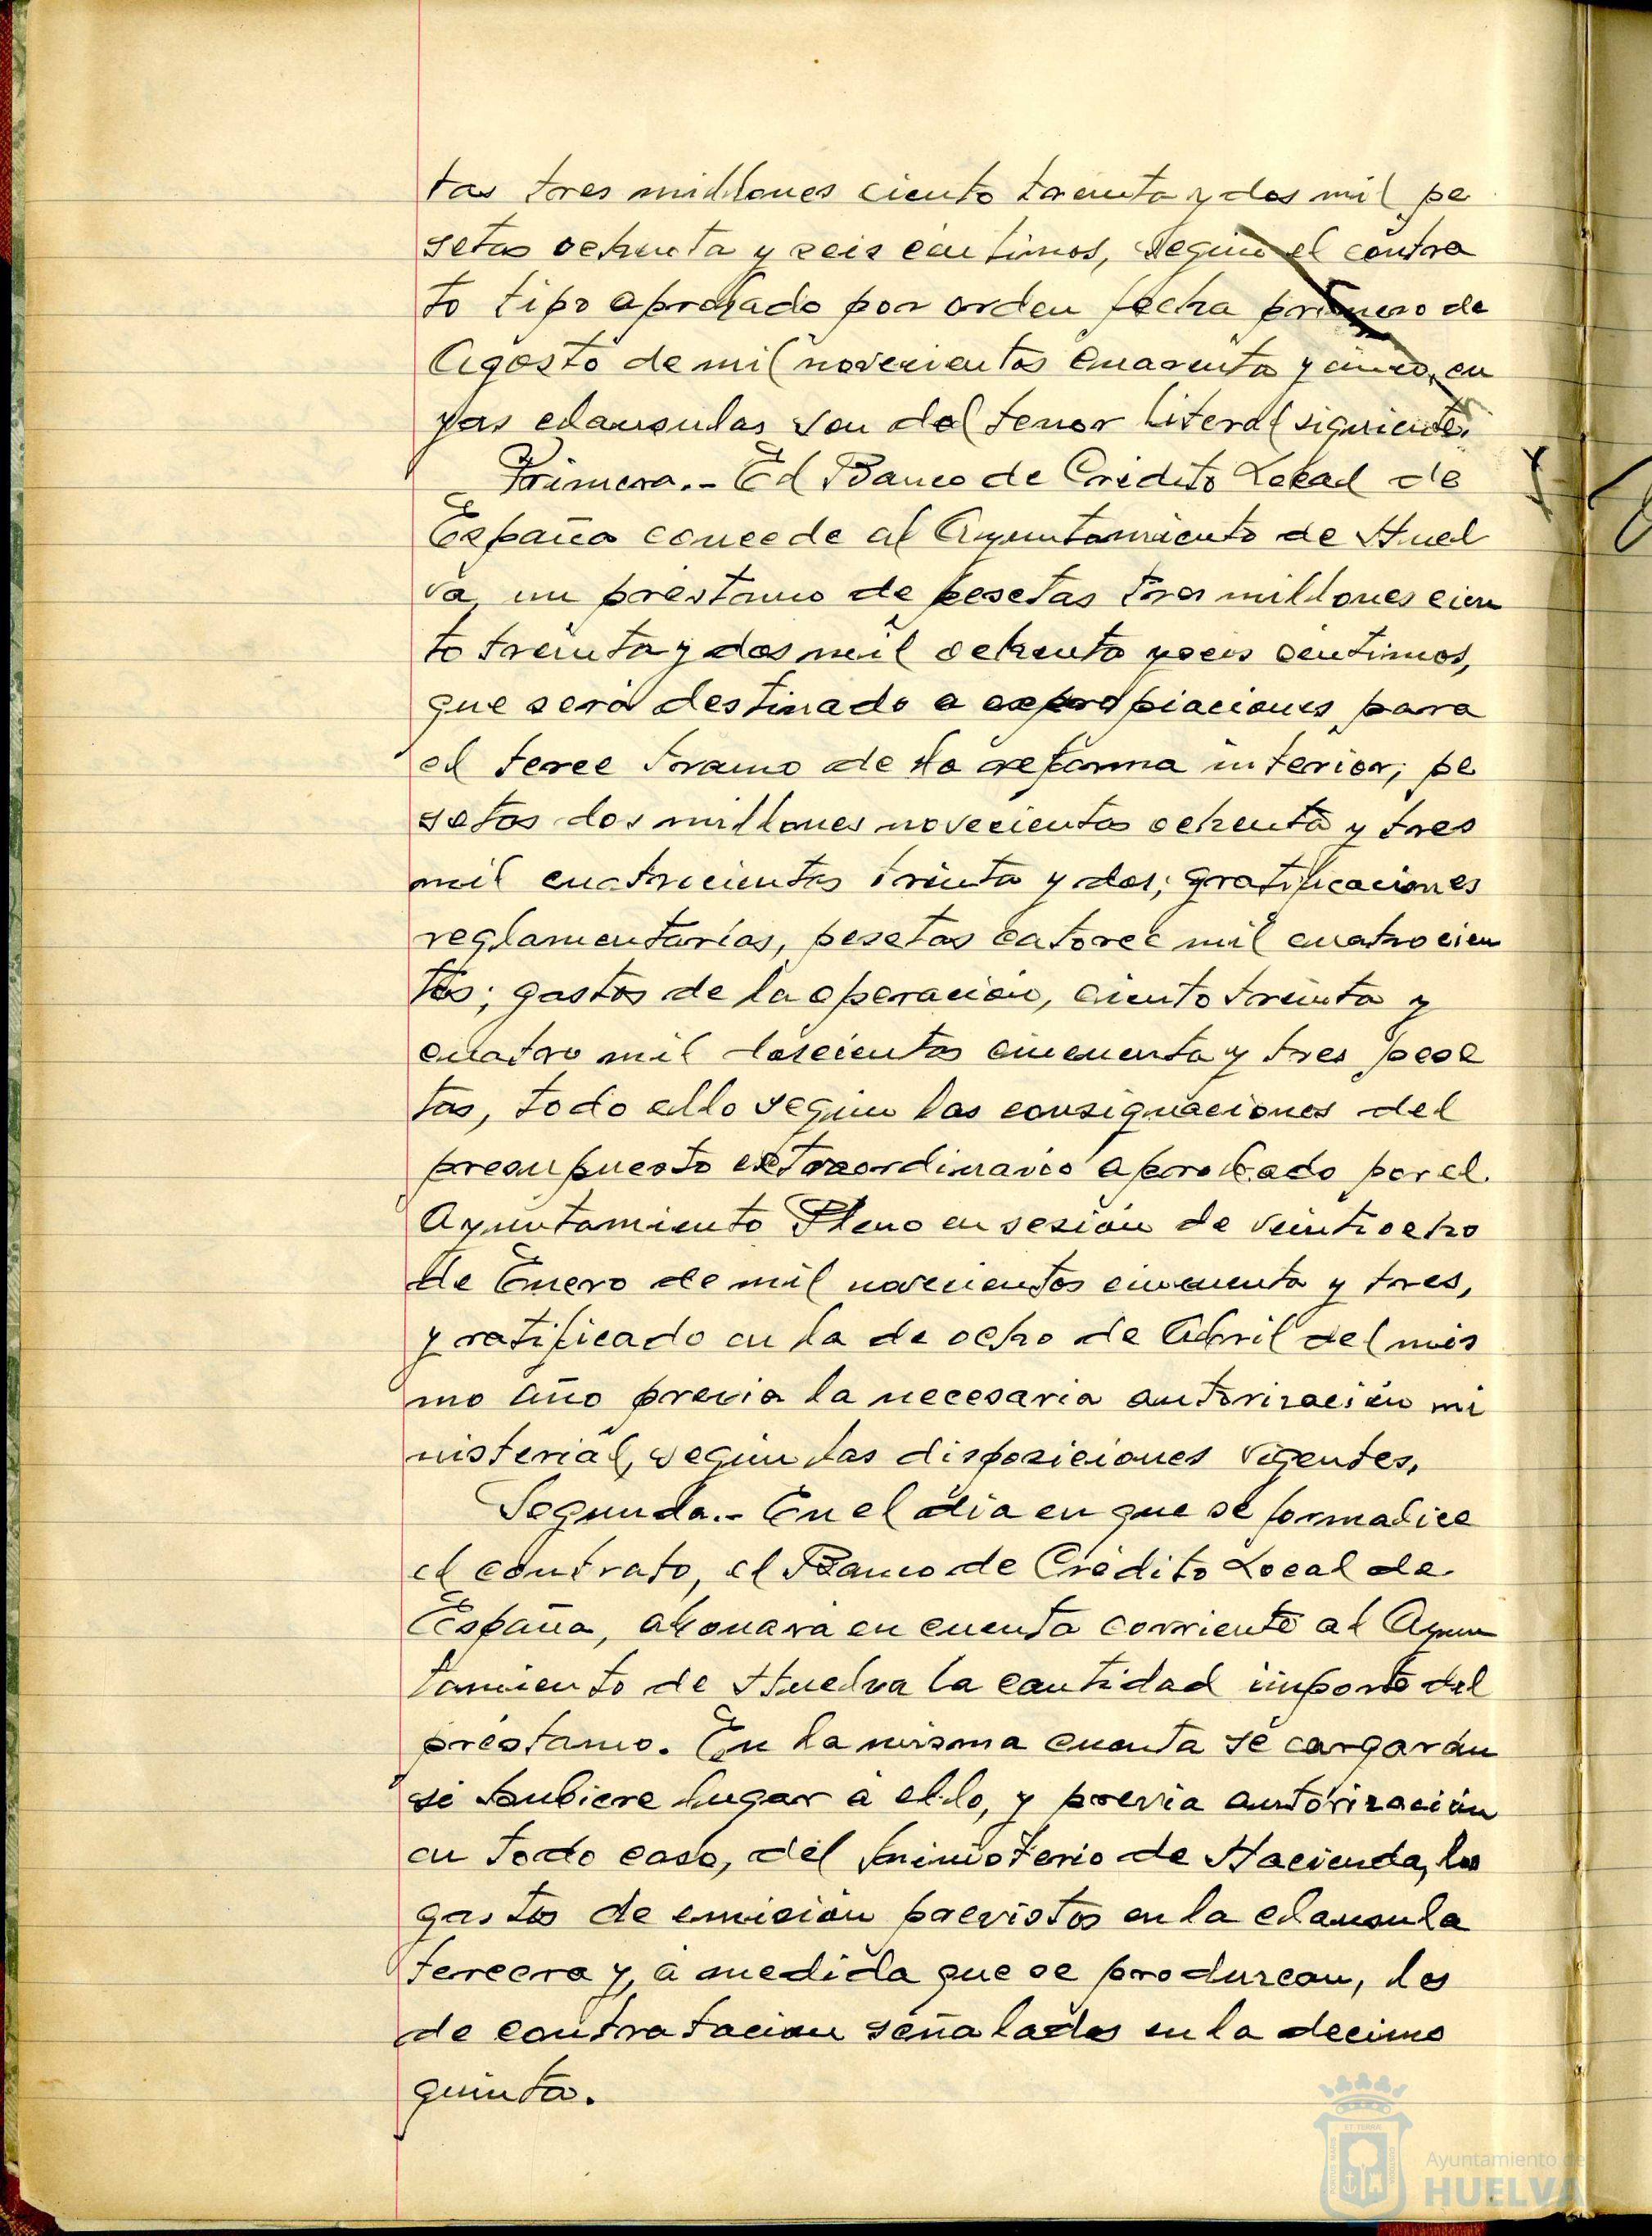 tas tres millones ciento treinta y dos mil pe
setas ochenta y seis centimos, según el contra
to tipo aprobado por orden fecha primero de
Agosto de mil novecientos cuarenta y cinco, cu
yas clausulas son del tenor literal siguiente.
Primera.- El Banco de Crédito Local de
España concede al Ayuntamiento de Huel
va, un prestamo de pesetas tres millones cien
to treinta y dos mil ochenta y seis centimos,
que será destinado a expropiaciones para
el terce tramo de la reforma interior; pe
setas dos millones novecientas ochenta y tres
mil cuatrocientas treinta y dos; gratificaciones
reglamentarias, pesetas catorce mil cuatrocien
tas; gastos de la operación, ciento treinta y
cuatro mil doscientas cincuenta y tres pese
tas, todo ello según las consignaciones del
presupuesto extraordinario aprobado por el
Ayuntamiento Pleno en sesión de veintiocho
de Enero de mil novecientos cincuenta y tres,
y ratificado en la de ocho de Abril del mis
mo año previa la necesaria autorización mi
nisterial, según las disposiciones vigentes.
Segunda.- En el día en que se formalice
el contrato, el Banco de Crédito Local de
España, abonara en cuenta corriente al Ayun
tamiento de Huelva la cantidad importe del
préstamo. En la misma cuenta se cargarán
si hubiere lugar a ello, y previa autorización
en todo caso, del Ministerio de Hacienda, los
gastos de emisión previstos en la clausula
tercera y, a medida que se produzcan, los
de contratacion señalados en la decimo
quinta.
Ayuntamiento de
HUELVA